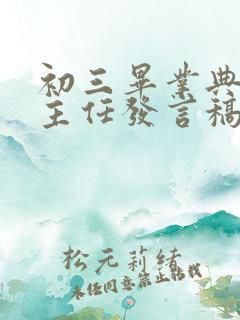 初三畢業典
主任發言稿
松元莉緒
未經同意禁止轉載